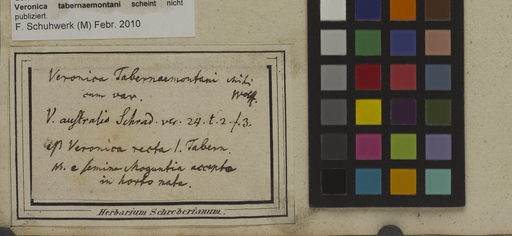 Veronica tabernaemontani scheint nicht
publiziert.
F. Schuhwerk (M) Febr. 2010
Veronica Tabernaemontani mihi
cum var. Wolff.
V. australis Schrad. ver. 24. t. 2. f. 3.
Veronica recta I. Tabern.
e semine Moguntia accepto
in horto nata.
Herbarium Schreberianum.